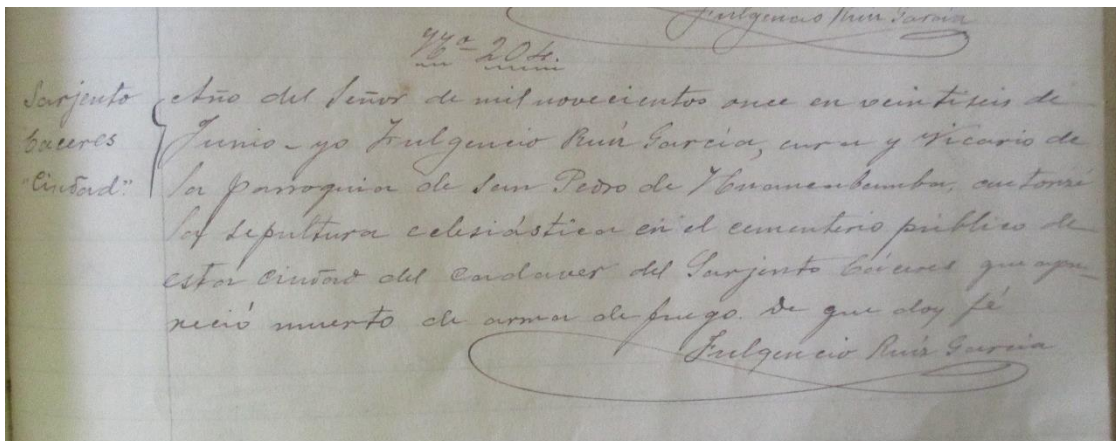 Fulgencio Ruiz García
Nº 204.
Sarjento
Caceres
"Ciudad".
Año del Señor de mil novecientos once en veintiseis de
Junio - yo Fulgencio Ruiz García, cura y Vicario de
la parroquia de San Pedro de Huancabamba, autorizé
la sepultura eclesiástica en el cementerio público de
esta ciudad del cadaver del Sarjento Cáceres que apa-
reció muerto de arma de fuego. De que doy fé
Fulgencio Ruiz García